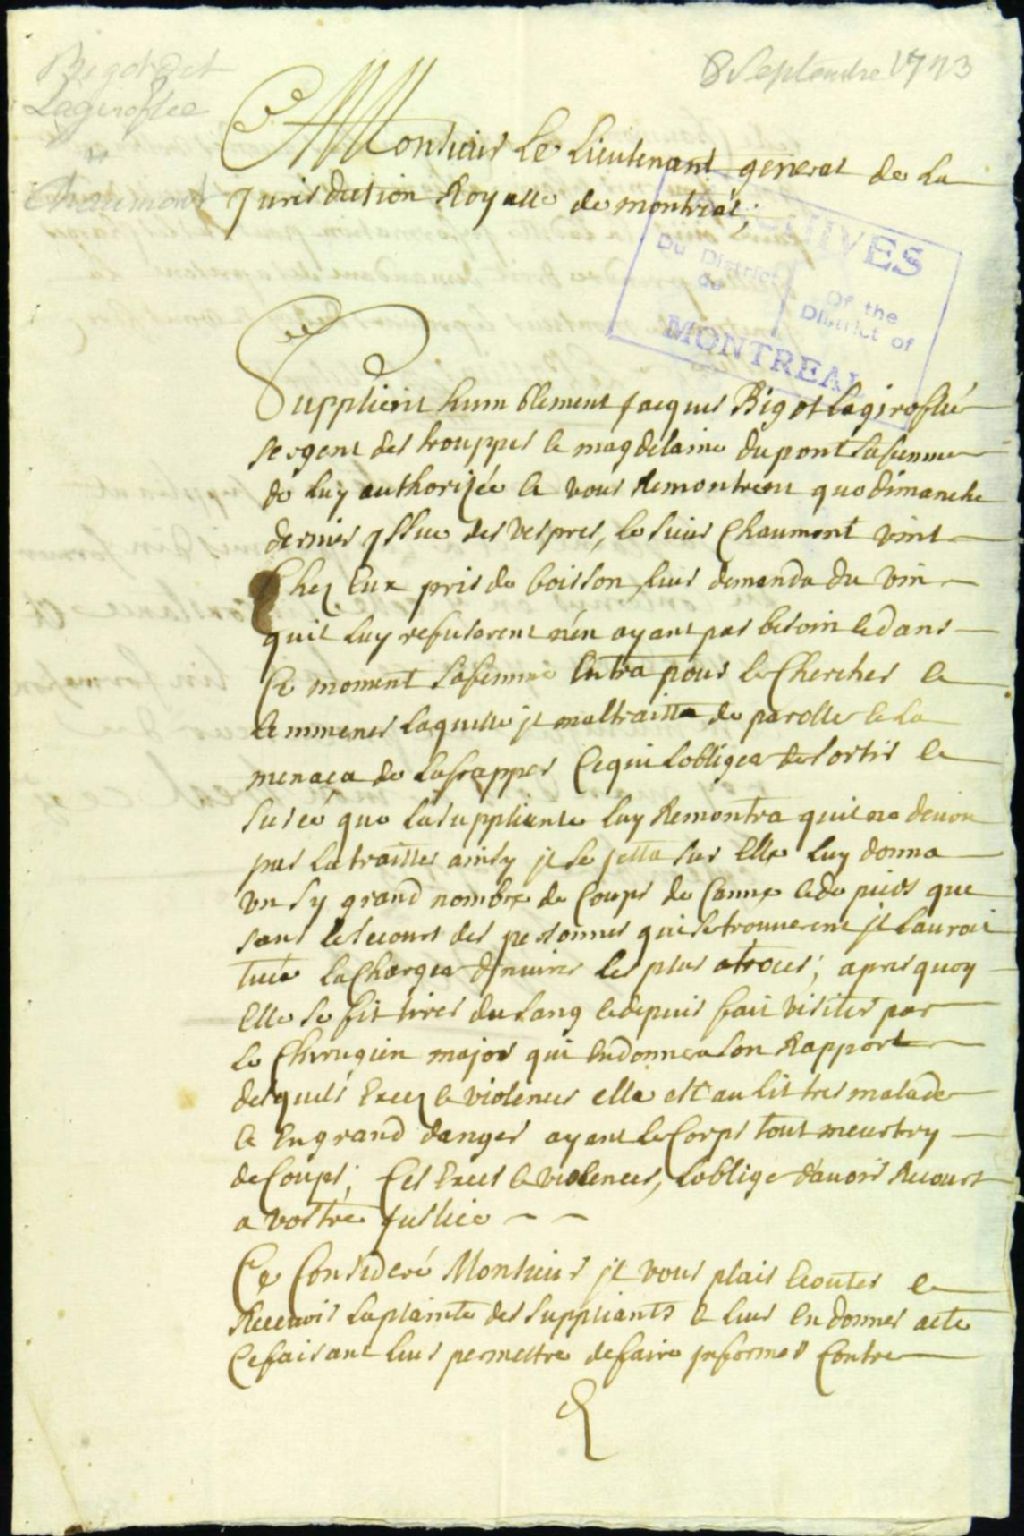 8 Septembre 1743
Bigot dit
Lagiroflée
vs
Chaumont
A Monsieur Le Lieutenant general de La
Jurisdiction Royalle de montreal;
ARCHIVES
Du District
de
Of the
District of
MONTREAL
Supplient humblement Jacques Bigot Lagiroflée
sergent des trouppes & magdelaine dupont sa femme
de luy authorizée & vous Remontrent que dimanche
dernier yssue des vespres, le sieur Chaumont vint
Chez Eux pris de boisson leur demanda du vin
quil luy refuserent n'en ayant pas besoin & dans
Ce moment sa femme Entra pour le Chercher &
Lemmener laquelle jl maltraitta de parolle & la
menaça de la frapper Ce qui lobligea de sortir &
sur ce que la suppliente luy Remontra quil ne devoit
pas la traitter ainsy jl se jetta sur Elle luy donna
un sy grand nombre de Coups de Canne & de pieds que
sans le secours des personnes qui se trouverent jl lauroit
tuée la Chargea d'jnjures les plus atroces; apres quoy
Elle se fit tirer du sang & depuis fait visiter par
le Chirugien major qui En donnera son Rapport
desquels Excez & violences elle est au lit tres malade
& En grand danger ayant le Corps tout meurtry
de Coups; Ces Exces & violences, loblige d'avoir Recourt
a vostre Justice
Ce Consideré Monsieur jl vous plais Ecouter &
Recevoir la plainte des suppliants & leur En donner acte
Ce faisant leur permettre de faire jnformer Contre